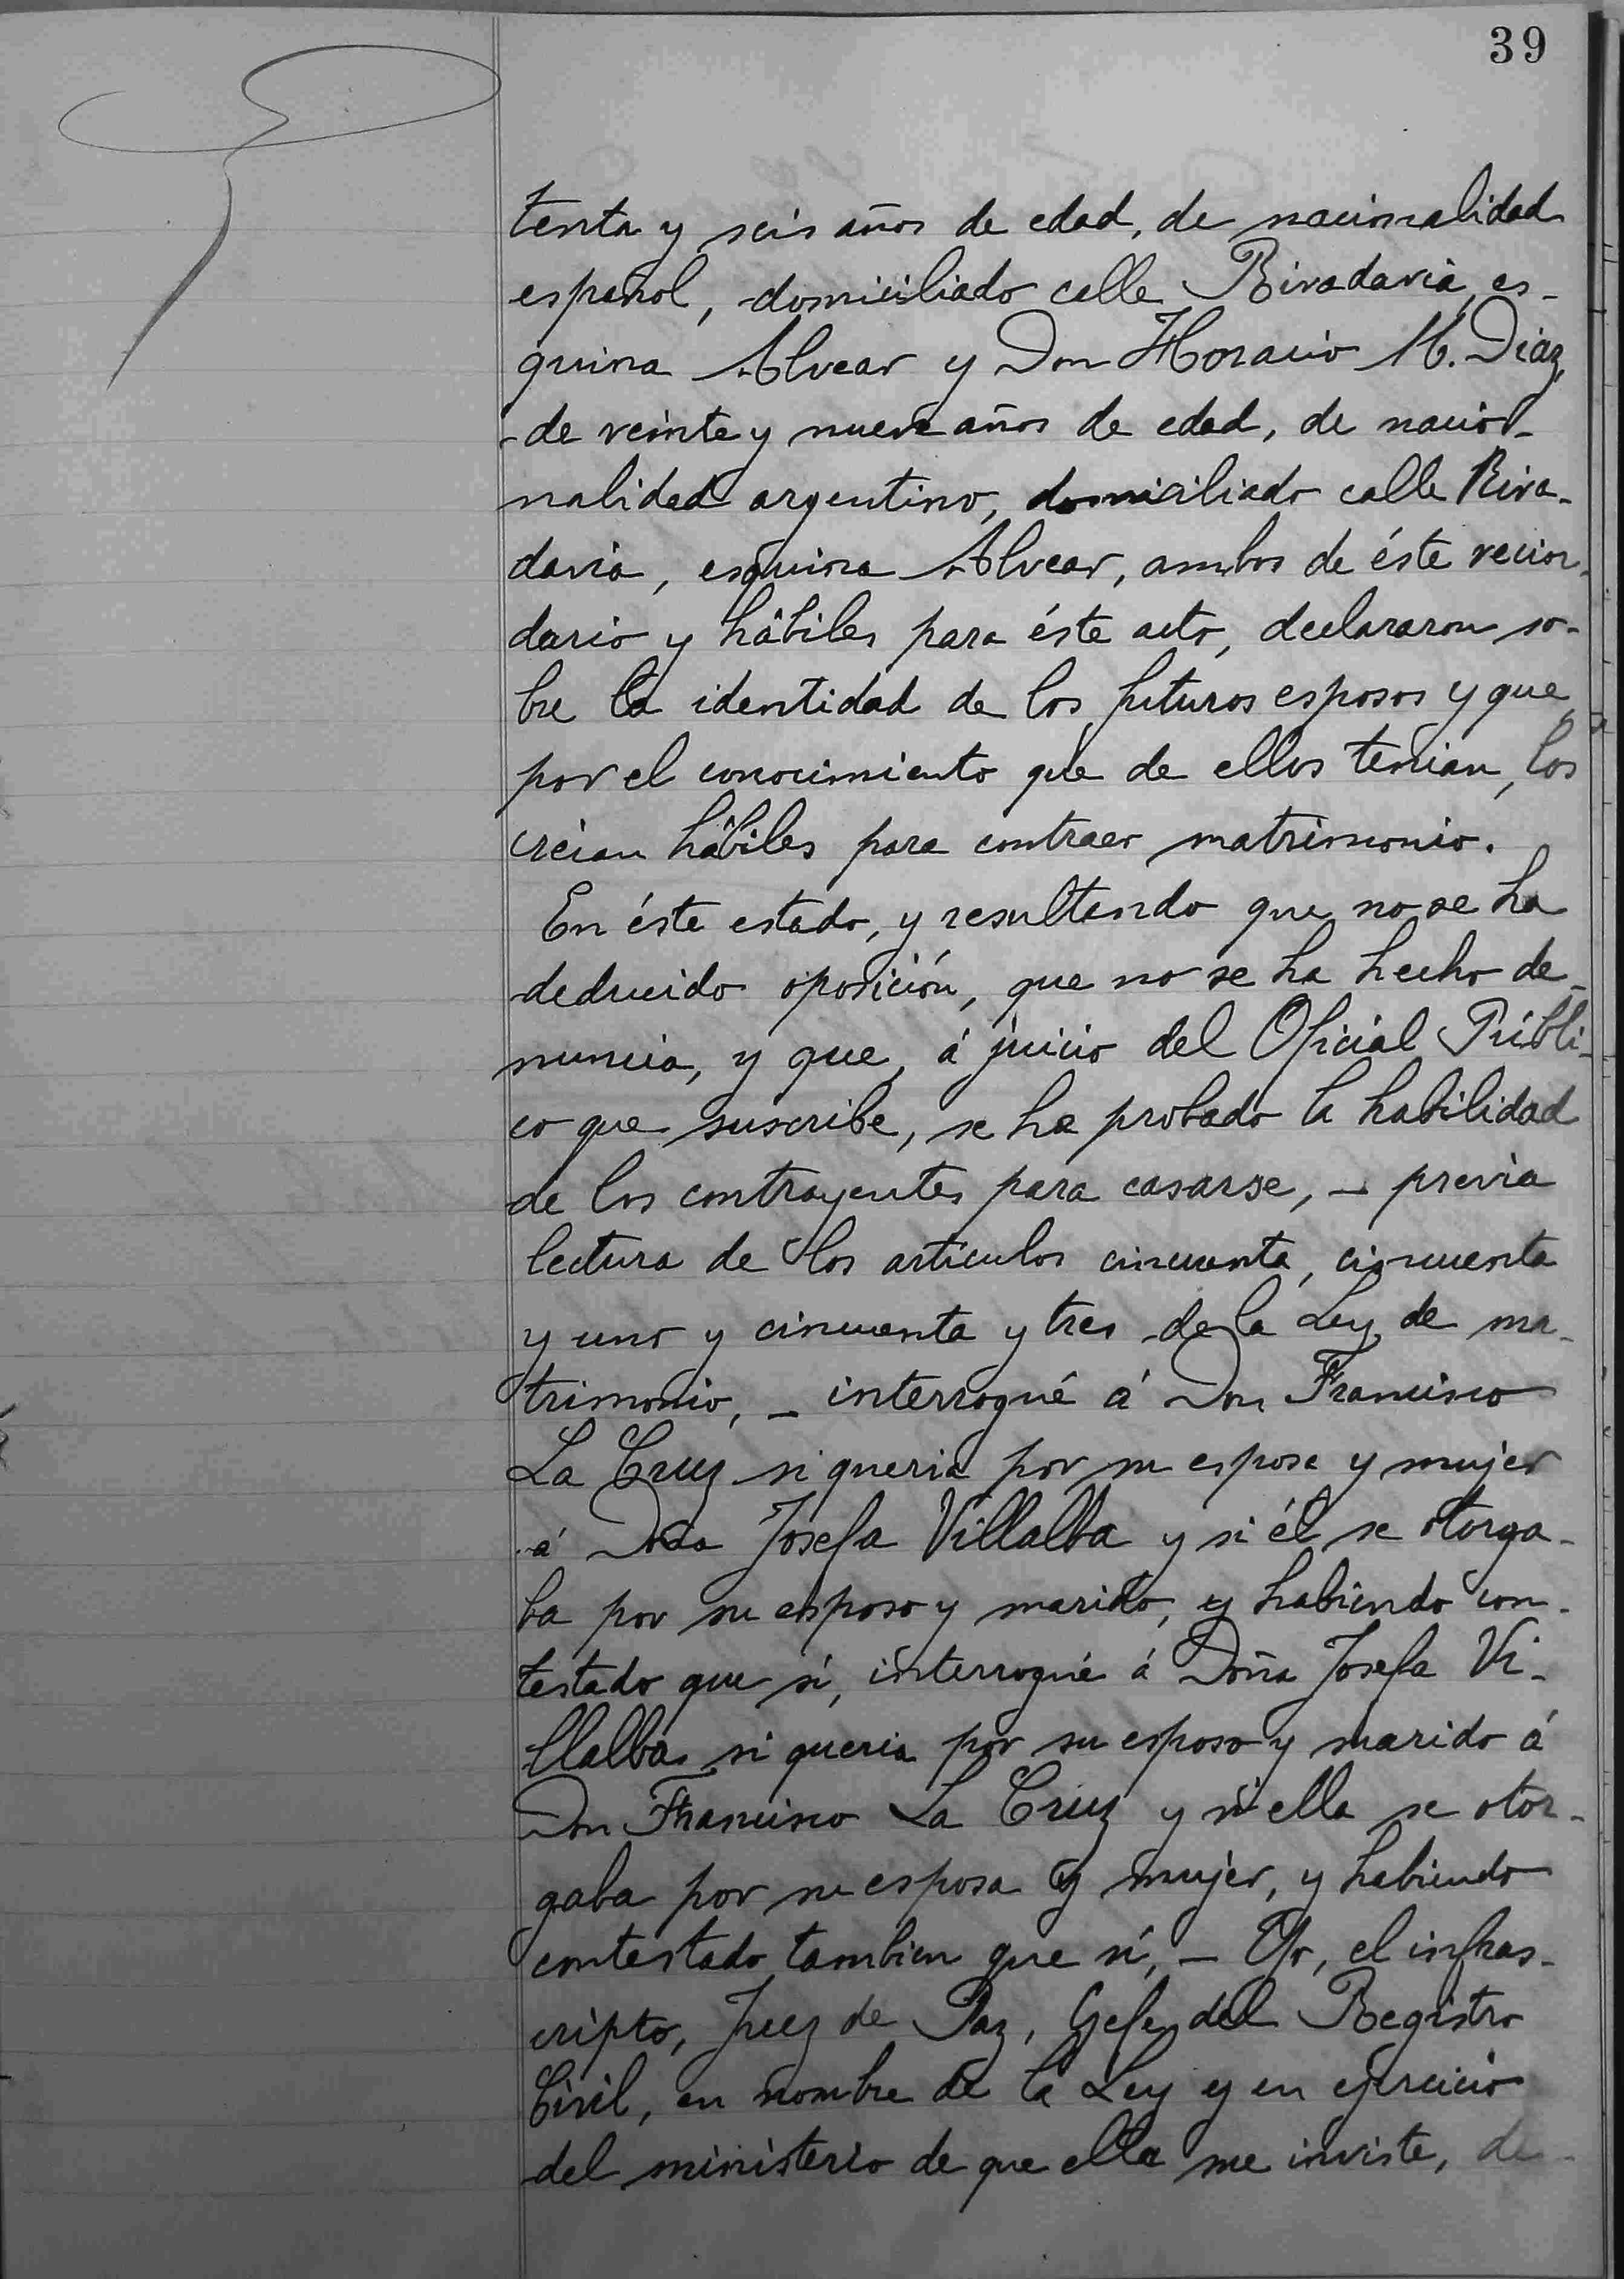 39
tenta y seis años de edad, de nacionalidad
español, domiciliado calle Rivadavia, es-
quina Alvear y Don Horacio M. Diaz,
de veinte y nueve años de edad, de nacio-
nalidad argentino, domiciliado calle Riva-
davia, esquina Alvear, ambos de éste vecin-
dario y hábiles para éste acto, declararon so-
bre la identidad de los futuros esposos y que
por el conocimiento que de ellos tenian, los
creian hábiles para contraer matrimonio.
En éste estado, y resultando que no se ha
deducido oposición, que no se ha hecho de-
nuncia, y que, á juicio del Oficial Públi-
co que suscribe, se ha probado la habilidad
de los contrayentes para casarse, – previa
lectura de los artículos cincuenta, cincuenta
y uno y cincuenta y tres de la Ley de ma-
trimonio, – interrogué á Don Francisco
La Cruz si queria por su esposa y mujer
á Doña Josefa Villalba y si él se otorga-
ba por su esposo y marido, y habiendo con-
testado que sí, interrogué á Doña Josefa Vi-
llalba si queria por su esposo y marido á
Don Francisco La Cruz y si ella se otor-
gaba por su esposa y mujer, y habiendo
contestado tambien que sí, – Yo, el infras-
cripto, Juez de Paz, Gefe del Registro
Civil, en nombre de la Ley y en ejercicio
del ministerio de que ella me inviste, de-